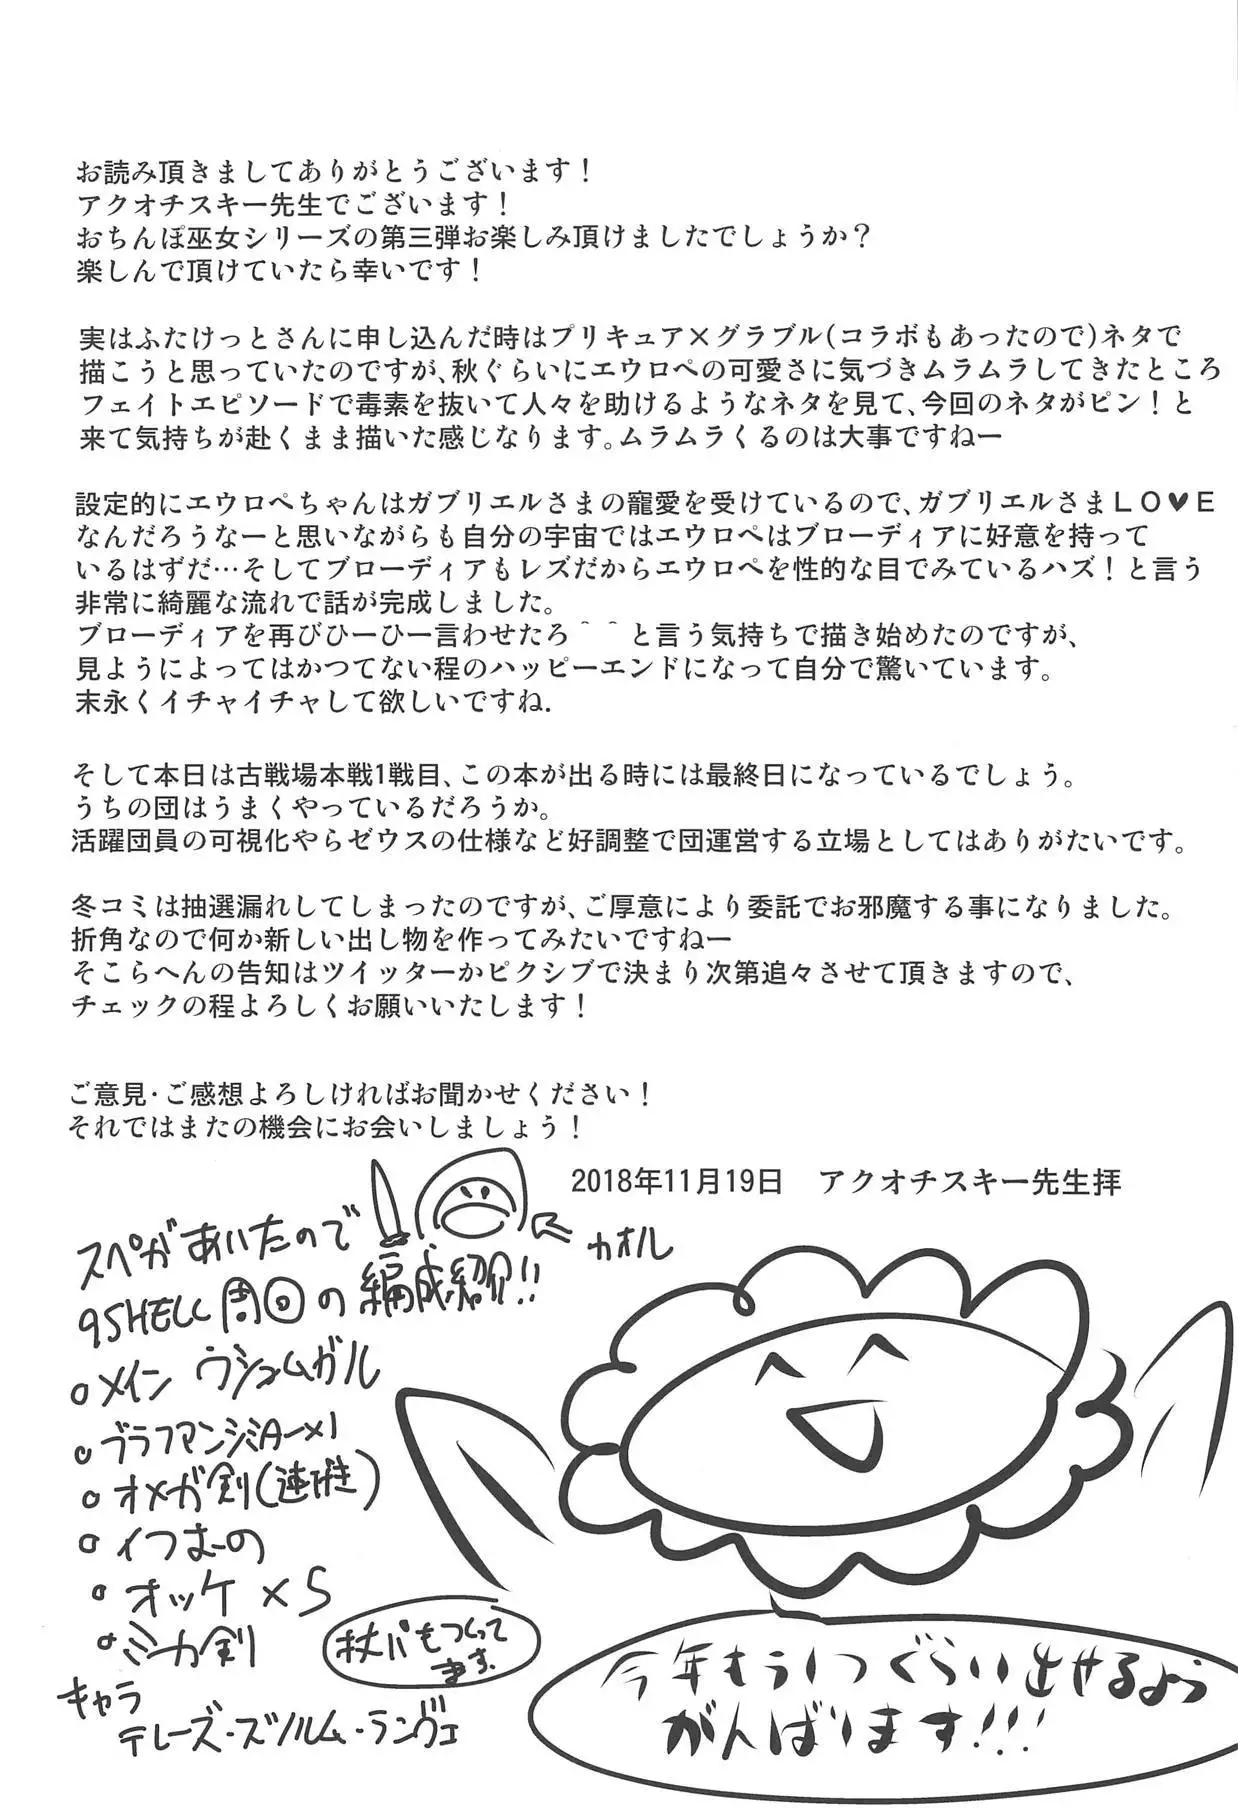 お読み頂きましてありがとうございます！
アクオチスキー先生でございます！
おちんぽ巫女シリーズの第三弾お楽しみ頂けましたでしょうか？
楽しんで頂けていたら幸いです！
実はふたけっとさんに申し込んだ時はプリキュア×グラブル(コラボもあったので)ネタで
描こうと思っていたのですが､秋ぐらいにエウロペの可愛さに気づきムラムラしてきたところ
フェイトエピソードで毒素を抜いて人々を助けるようなネタを見て､今回のネタがピン！と
来て気持ちが赴くまま描いた感じなります｡ムラムラくるのは大事ですねー
設定的にエウロペちゃんはガブリエルさまの寵愛を受けているので､ガブリエルさまＬＯ♥Ｅ
なんだろうなーと思いながらも自分の宇宙ではエウロペはブローディアに好意を持って
いるはずだ…そしてブローディアもレズだからエウロペを性的な目でみているハズ！と言う
非常に綺麗な流れで話が完成しました｡
ブローディアを再びひーひー言わせたろ＾＾と言う気持ちで描き始めたのですが､
見ようによってはかつてない程のハッピーエンドになって自分で驚いています｡
末永くイチャイチャして欲しいですね.
そして本日は古戦場本戦1戦目､この本が出る時には最終日になっているでしょう｡
うちの団はうまくやっているだろうか｡
活躍団員の可視化やらゼウスの仕様など好調整で団運営する立場としてはありがたいです｡
冬コミは抽選漏れしてしまったのですが､ご厚意により委託でお邪魔する事になりました｡
折角なので何か新しい出し物を作ってみたいですねー
そこらへんの告知はツイッターかピクシブで決まり次第追々させて頂きますので､
チェックの程よろしくお願いいたします！
ご意見･ご感想よろしければお聞かせください！
それではまたの機会にお会いしましょう！
2018年11月19日　アクオチスキー先生拝
スペがあいたので
カオル
95HELL周回の編成紹介!!
メイン ウシュムガル
ブラフマンシミター×1
オメガ剣(連撃)
イつおーの
オッケ×5
ミカ剣
杖パもつくって
ます.
キャラ
テレーズ･ズソルム･ランヴェ
今年もう1つぐらい出せるよう
がんばります!!!